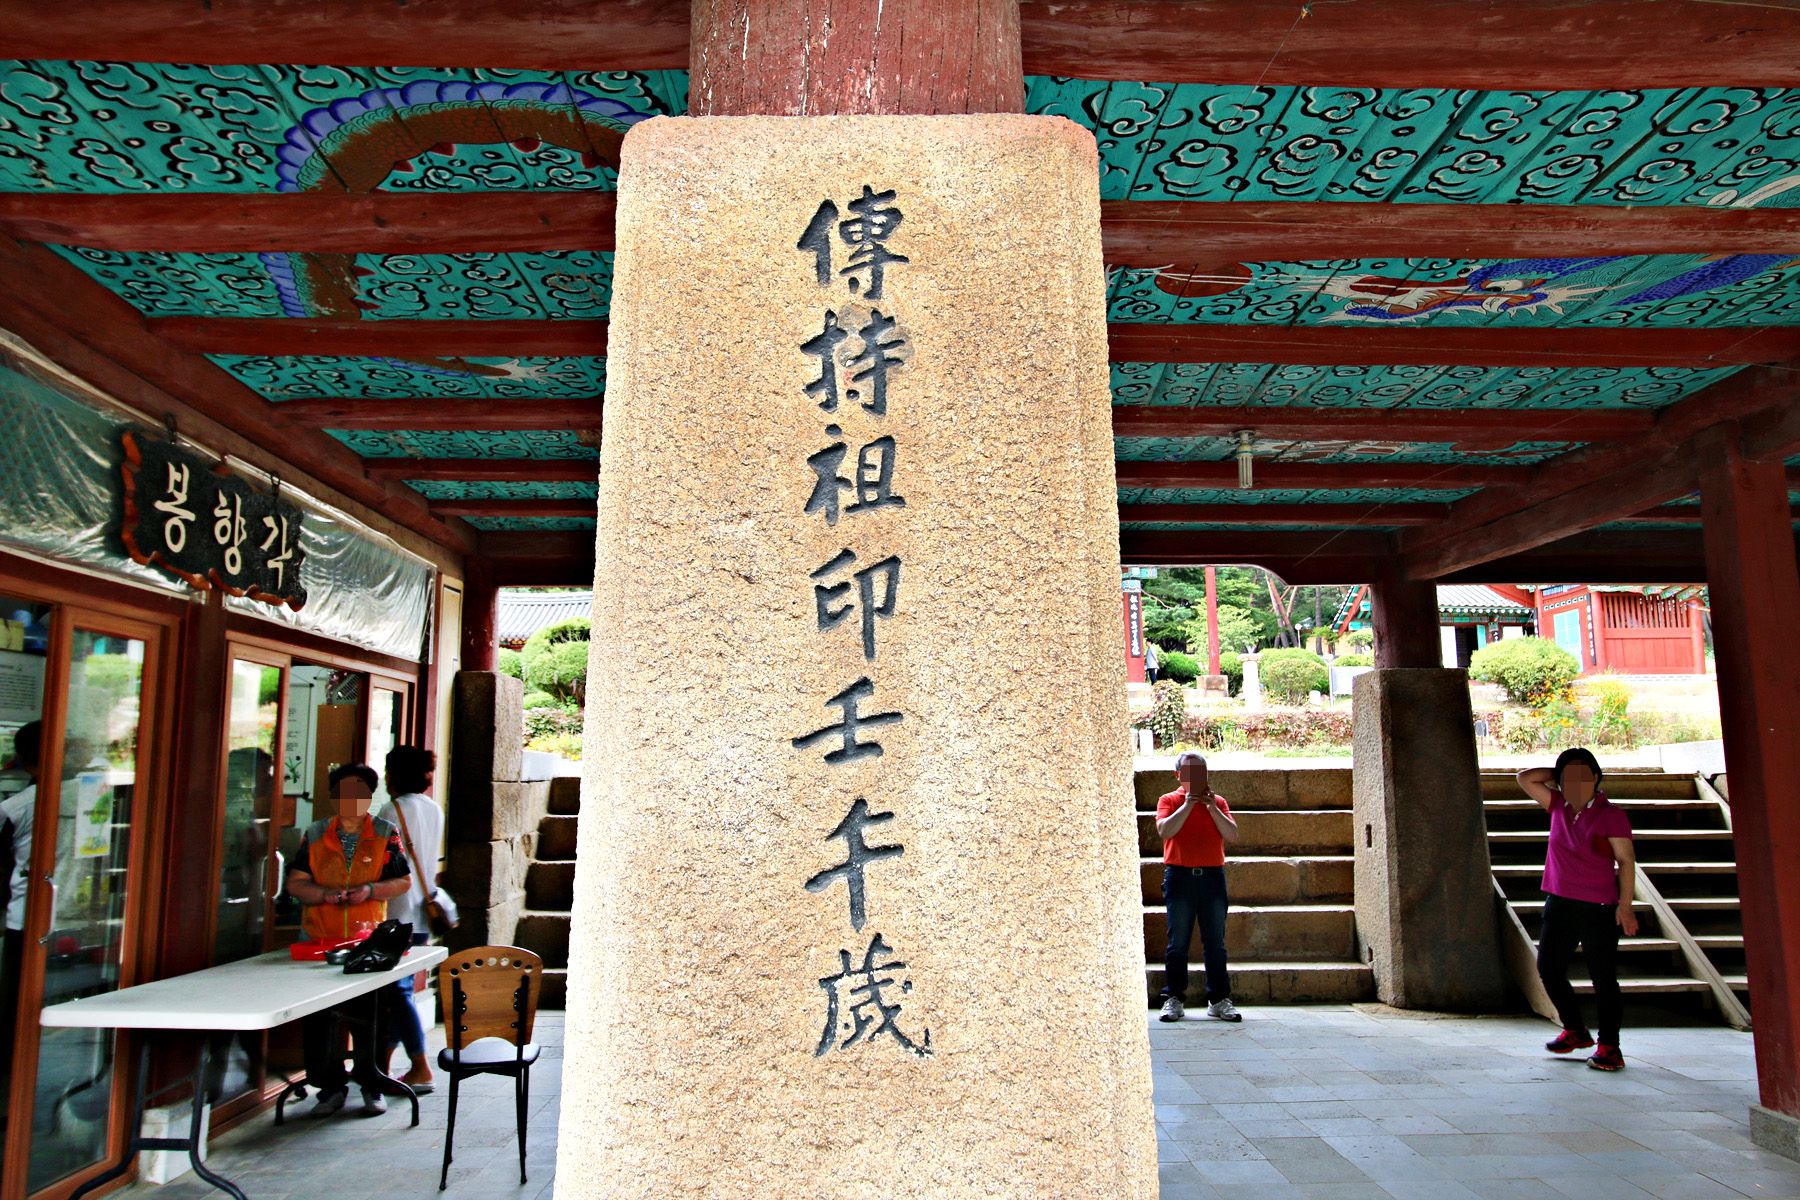 傳持祖印壬午歲
봉향각